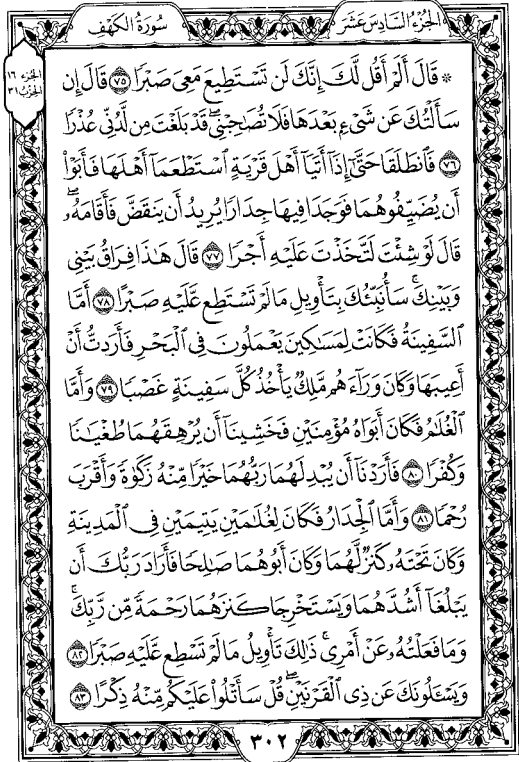 الجزء السادس عشر
سورة الكهف
الجزء ١٦
الحزب ٣١
۞ قَالَ أَلَمْ أَقُل لَّكَ إِنَّكَ لَن تَسْتَطِيعَ مَعِيَ صَبْرًا ٧٥ قَالَ إِن
سَأَلْتُكَ عَن شَيْءٍ بَعْدَهَا فَلَا تُصَاحِبْنِي ۖ قَدْ بَلَغْتَ مِن لَّدُنِّي عُذْرًا
٧٦ فَانطَلَقَا حَتَّىٰ إِذَا أَتَيَا أَهْلَ قَرْيَةٍ اسْتَطْعَمَا أَهْلَهَا فَأَبَوْا
أَن يُضَيِّفُوهُمَا فَوَجَدَا فِيهَا جِدَارًا يُرِيدُ أَن يَنقَضَّ فَأَقَامَهُ ۖ
قَالَ لَوْ شِئْتَ لَتَّخَذْتَ عَلَيْهِ أَجْرًا ٧٧ قَالَ هَٰذَا فِرَاقُ بَيْنِي
وَبَيْنِكَ ۚ سَأُنَبِّئُكَ بِتَأْوِيلِ مَا لَمْ تَسْتَطِع عَّلَيْهِ صَبْرًا ٧٨ أَمَّا
السَّفِينَةُ فَكَانَتْ لِمَسَاكِينَ يَعْمَلُونَ فِي الْبَحْرِ فَأَرَدتُّ أَنْ
أَعِيبَهَا وَكَانَ وَرَاءَهُم مَّلِكٌ يَأْخُذُ كُلَّ سَفِينَةٍ غَصْبًا ٧٩ وَأَمَّا
الْغُلَامُ فَكَانَ أَبَوَاهُ مُؤْمِنَيْنِ فَخَشِينَا أَن يُرْهِقَهُمَا طُغْيَانًا
وَكُفْرًا ٨٠ فَأَرَدْنَا أَن يُبْدِلَهُمَا رَبُّهُمَا خَيْرًا مِّنْهُ زَكَاةً وَأَقْرَبَ
رُحْمًا ٨١ وَأَمَّا الْجِدَارُ فَكَانَ لِغُلَامَيْنِ يَتِيمَيْنِ فِي الْمَدِينَةِ
وَكَانَ تَحْتَهُ كَنزٌ لَّهُمَا وَكَانَ أَبُوهُمَا صَالِحًا فَأَرَادَ رَبُّكَ أَن
يَبْلُغَا أَشُدَّهُمَا وَيَسْتَخْرِجَا كَنزَهُمَا رَحْمَةً مِّن رَّبِّكَ ۚ
وَمَا فَعَلْتُهُ عَنْ أَمْرِي ۚ ذَٰلِكَ تَأْوِيلُ مَا لَمْ تَسْطِع عَّلَيْهِ صَبْرًا ٨٢
وَيَسْأَلُونَكَ عَن ذِي الْقَرْنَيْنِ ۖ قُلْ سَأَتْلُو عَلَيْكُم مِّنْهُ ذِكْرًا ٨٣
٣٠٢